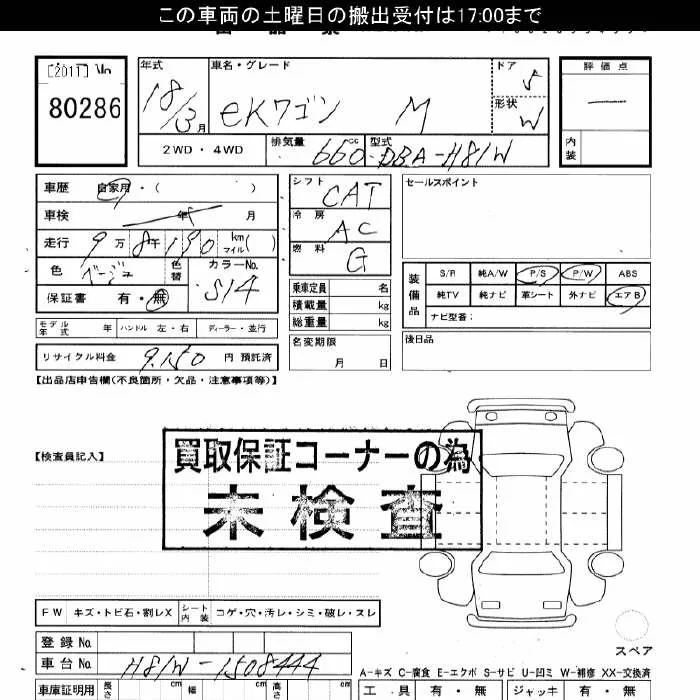 この車両の土曜日の搬出受付は17:00まで
[2011] No
80286
年式 18/3月
車名・グレード eKワゴン M
ドア 5
形状 W
評価点 —
内装
2WD・4WD
排気量 660 cc
型式 DBA-H81W
車歴 自家用・( )
車検 年 月
走行 9万8千190 km マイル( )
色 ベージュ 色替 カラーNo. S14
保証書 有・無
モデル年式 年 ハンドル 左・右 ディーラー・並行
リサイクル料金 9,150 円 預託済
シフト CAT
冷房 AC
燃料 G
乗車定員 名
積載量 kg
総重量 kg
名変期限 月 日
セールスポイント
装備品
S/R 純A/W P/S P/W ABS
純TV 純ナビ 革シート 外ナビ エアB
ナビ型番:
後日品
【出品店申告欄(不良箇所・欠品・注意事項等)】
【検査員記入】
買取保証コーナーの為
未検査
FW キズ・トビ石・割レX シート内装 コゲ・穴・汚レ・シミ・破レ・スレ
登録No.
車台No. H81W-1508444
スペア
A-キズ C-腐食 E-エクボ S-サビ U-凹ミ W-補修 XX-交換済
車庫証明用 長さ cm 幅 cm 高さ cm
工具 有・無 ジャッキ 有・無